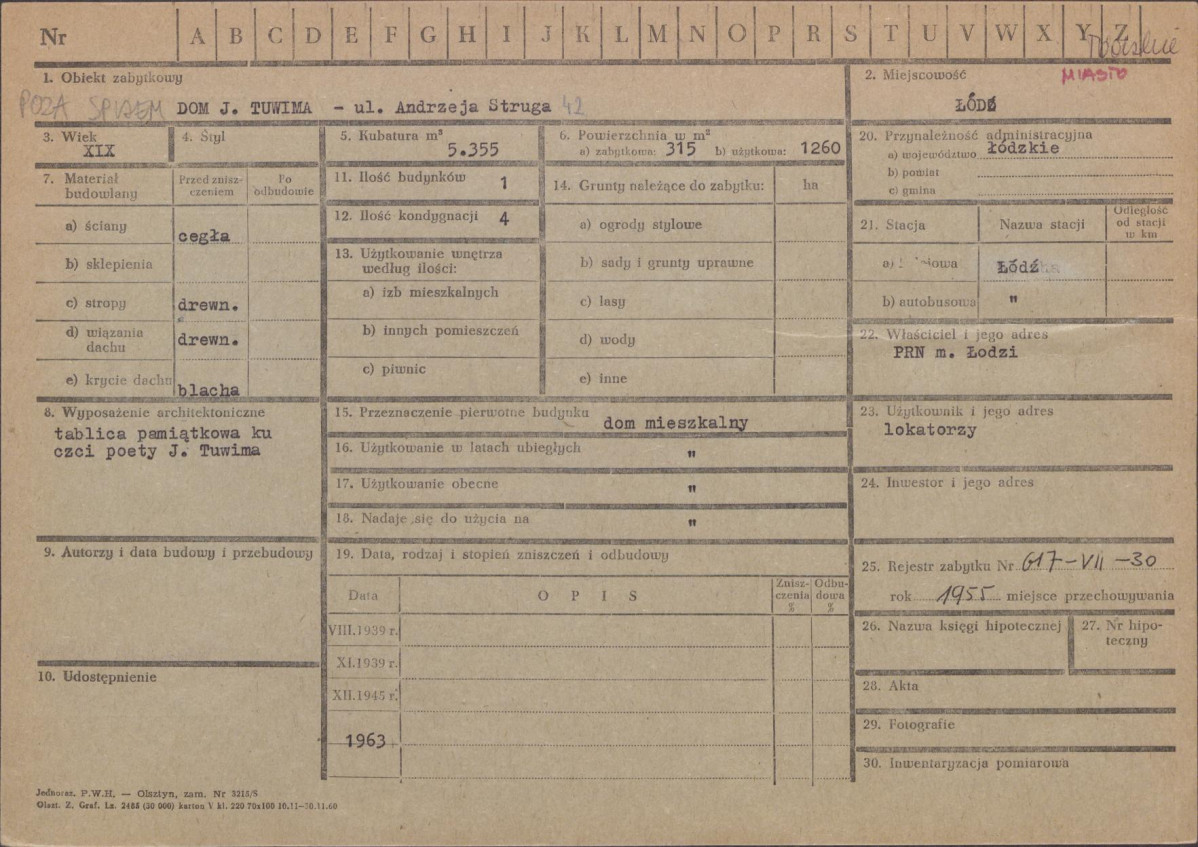 Nr A B C D E F G H I J K L M N O P R S T U V W X Y Z
1. Obiekt zabytkowy
POZA SPISEM DOM J. TUWIMA – ul. Andrzeja Struga 42
2. Miejscowość MIASTO
ŁÓDŹ
3. Wiek
XIX
4. Styl
5. Kubatura m³
5.355
6. Powierzchnia w m²
a) zabytkowa: 315 b) użytkowa: 1260
7. Materiał budowlany
Przed zniszczeniem
Po odbudowie
a) ściany cegła
b) sklepienia
c) stropy drewn.
d) wiązania dachu drewn.
e) krycie dachu blacha
8. Wyposażenie architektoniczne
tablica pamiątkowa ku
czci poety J. Tuwima
9. Autorzy i data budowy i przebudowy
10. Udostępnienie
11. Ilość budynków 1
12. Ilość kondygnacji 4
13. Użytkowanie wnętrza
według ilości:
a) izb mieszkalnych
b) innych pomieszczeń
c) piwnic
14. Grunty należące do zabytku: ha
a) ogrody stylowe
b) sady i grunty uprawne
c) lasy
d) wody
e) inne
15. Przeznaczenie pierwotne budynku dom mieszkalny
16. Użytkowanie w latach ubiegłych "
17. Użytkowanie obecne "
18. Nadaje się do użycia na "
19. Data, rodzaj i stopień zniszczeń i odbudowy
Data OPIS Zniszczenia % Odbudowa %
VIII.1939 r.
XI.1939 r.
XII.1945 r.
1963
20. Przynależność administracyjna
a) województwo łódzkie
b) powiat
c) gmina
21. Stacja Nazwa stacji Odległość od stacji w km
a) Łódź
b) autobusowa "
22. Właściciel i jego adres
PRN m. Łodzi
23. Użytkownik i jego adres
lokatorzy
24. Inwestor i jego adres
25. Rejestr zabytku Nr 617-VII-30
rok 1955 miejsce przechowywania
26. Nazwa księgi hipotecznej
27. Nr hipoteczny
28. Akta
29. Fotografie
30. Inwentaryzacja pomiarowa
Jednoraz. P.W.H. — Olsztyn, zam. Nr 3215/S
Olszt. Z. Graf. Lz. 2485 (30 000) karton V kl. 220 70x100 10.11—30.11.60